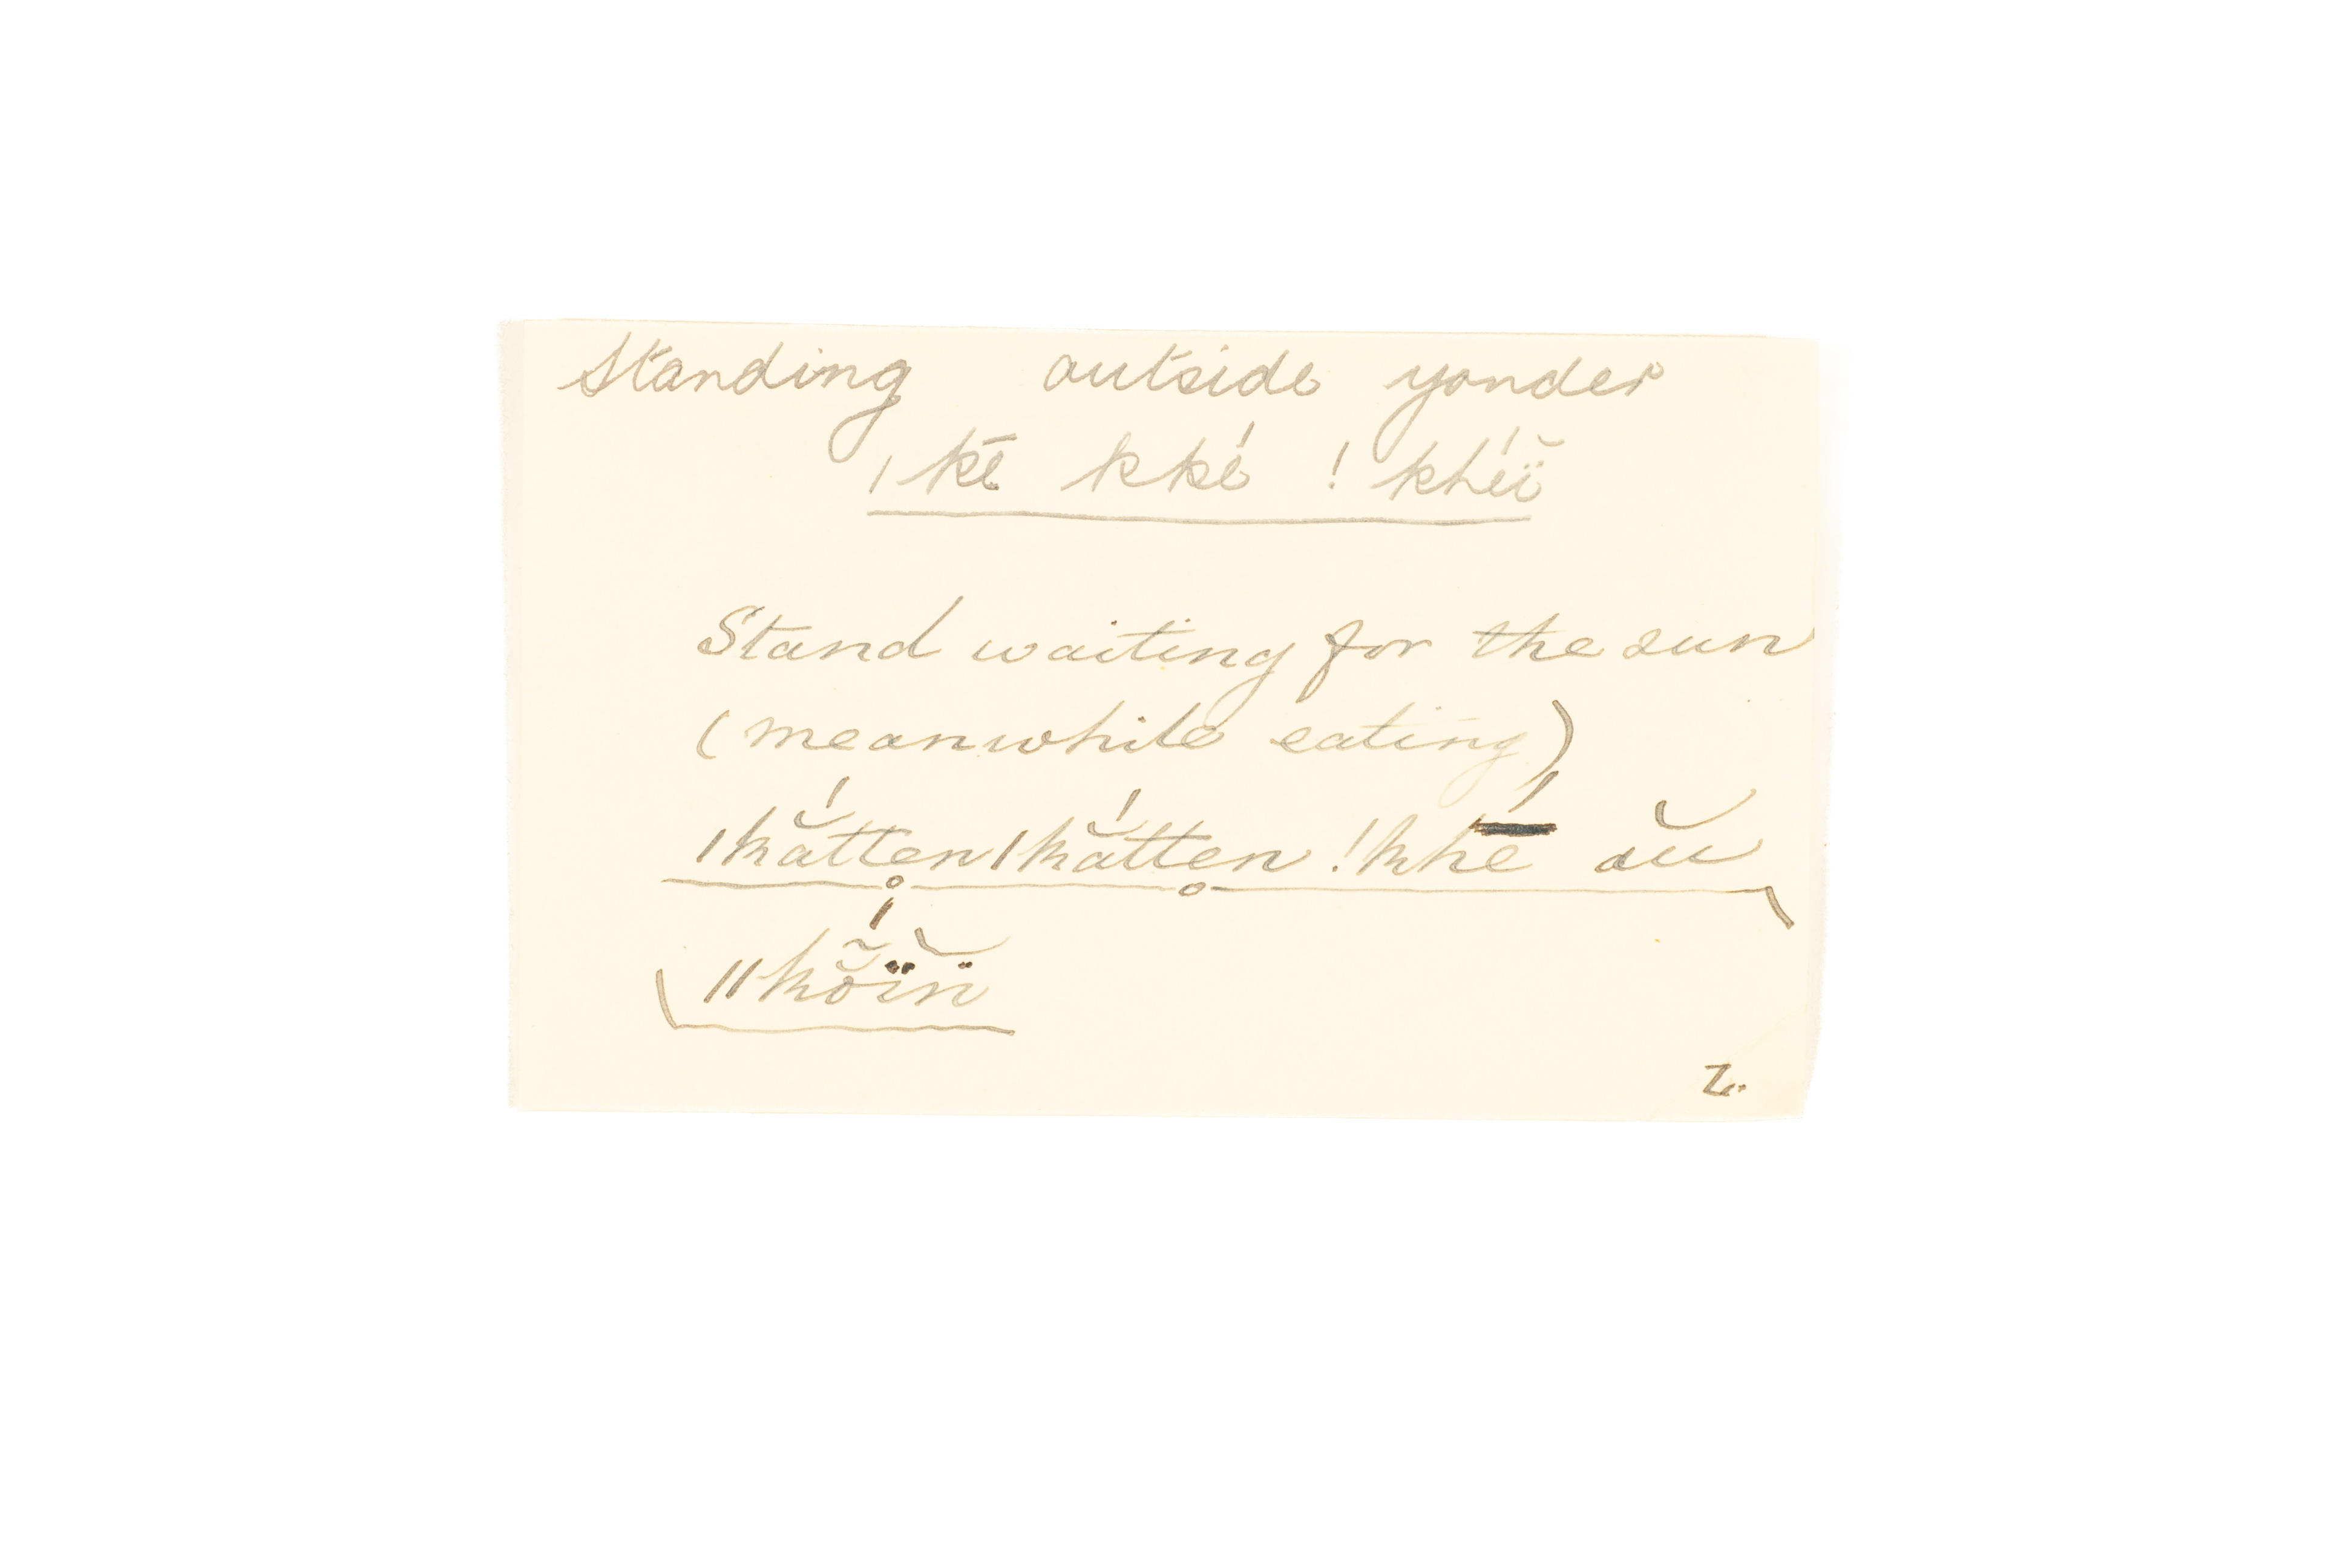 Standing outside yonder
|kē kké !khéĭ̈
Stand waiting for the sun
(meanwhile eating)
|kắtten|kắtten !khé̄ aŭ
||kõ̆ḯn̆̈
L.